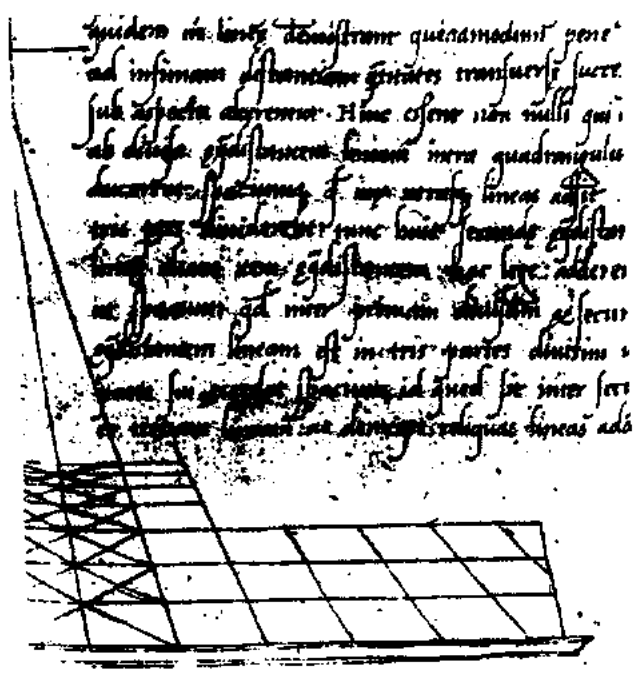 quidem in lineis demonstrant quemadmodum pene
ad infinitam distantiam q̃titates transuersę succe
sub aspectu alterentur. Hinc essent non nulli qui
ab diuisa ęq̃distantem lineam intra quadrangulu
ducerent, spatiumq; q̃ lineas adsit
tris partes diuiderent tunc huic secundę ęq̃distan
lineę aliam item ęq̃distantem hac lege adderen
ut spatium qd̃ inter primam diuisam & secun
ęq̃distantem lineam est in tris partes diuisum u
parte sui excedat spatium id quod sit inter secu
et tertiam lineam: ac deinceps reliquas lineas add